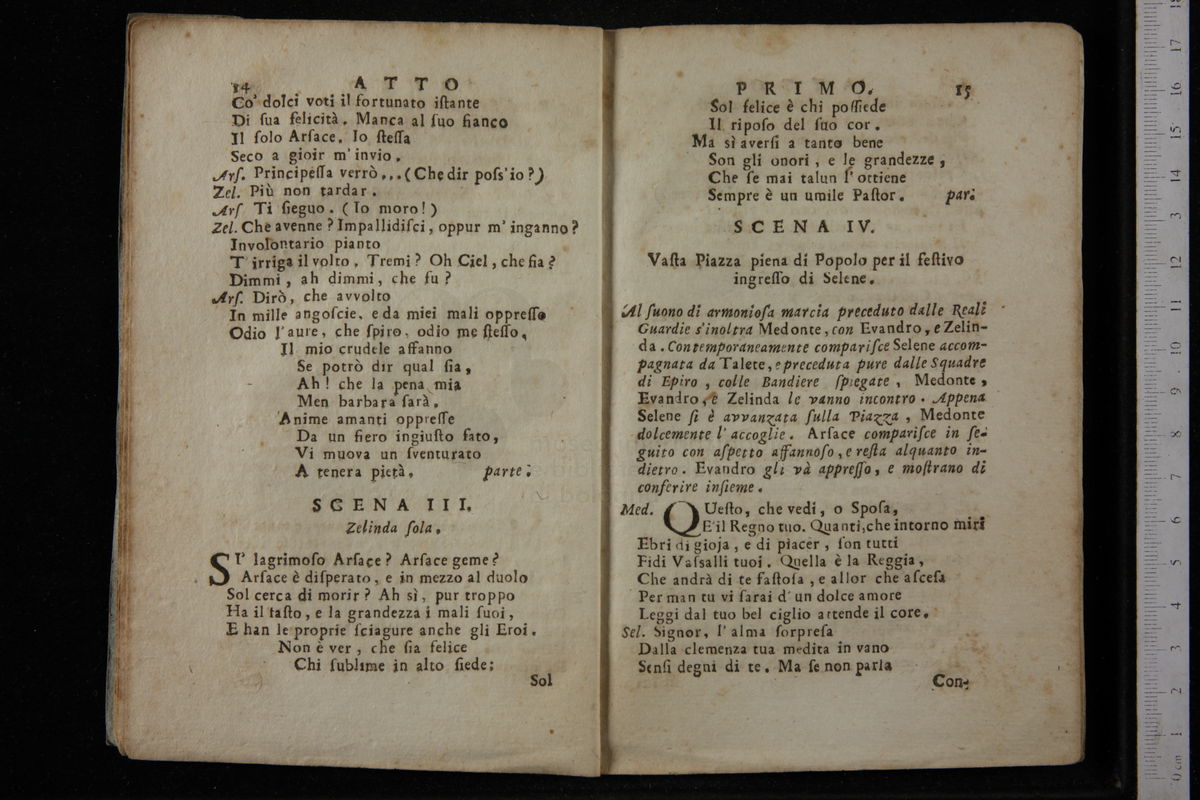 14 ATTO
Co' dolci voti il fortunato iſtante
Di ſua felicità. Manca al ſuo fianco
Il ſolo Arſace. Io ſteſſa
Seco a gioir m' invio.
Arſ. Principeſſa verrò... (Che dir poſs'io?)
Zel. Più non tardar.
Arſ Ti ſieguo. (Io moro!)
Zel. Che avenne? Impallidiſci, oppur m' inganno?
Involontario pianto
T' irriga il volto. Tremi? Oh Ciel, che ſia?
Dimmi, ah dimmi, che fu?
Arſ. Dirò, che avvolto
In mille angoſcie, e da miei mali oppreſſo
Odio l'aure, che ſpiro, odio me ſteſſo,
Il mio crudele affanno
Se potrò dir qual ſia,
Ah! che la pena mia
Men barbara ſarà.
Anime amanti oppreſſe
Da un fiero ingiuſto fato,
Vi muova un ſventurato
A tenera pietà. parte.
SCENA III.
Zelinda ſola.
SI' lagrimoſo Arſace? Arſace geme?
Arſace è diſperato, e in mezzo al duolo
Sol cerca di morir? Ah sì, pur troppo
Ha il faſto, e la grandezza i mali ſuoi,
E han le proprie ſciagure anche gli Eroi.
Non è ver, che ſia felice
Chi ſublime in alto ſiede;
Sol
PRIMO. 15
Sol felice è chi poſſiede
Il ripoſo del ſuo cor.
Ma sì averſi a tanto bene
Son gli onori, e le grandezze,
Che ſe mai talun l' ottiene
Sempre è un umile Paſtor. par.
SCENA IV.
Vaſta Piazza piena di Popolo per il feſtivo
ingreſſo di Selene.
Al ſuono di armonioſa marcia preceduto dalle Reali
Guardie s'inoltra Medonte, con Evandro, e Zelin-
da. Contemporaneamente compariſce Selene accom-
pagnata da Talete, e preceduta pure dalle Squadre
di Epiro, colle Bandiere ſpiegate, Medonte,
Evandro, e Zelinda le vanno incontro. Appena
Selene ſi è avvanzata ſulla Piazza, Medonte
dolcemente l' accoglie. Arſace compariſce in ſe-
guito con aſpetto affannoſo, e reſta alquanto in-
dietro. Evandro gli và appreſſo, e moſtrano di
conferire inſieme.
Med. QUeſto, che vedi, o Spoſa,
E' il Regno tuo. Quanti, che intorno miri
Ebri di gioja, e di piacer, ſon tutti
Fidi Vaſſalli tuoi. Quella è la Reggia,
Che andrà di te faſtoſa, e allor che aſceſa
Per man tu vi ſarai d' un dolce amore
Leggi dal tuo bel ciglio attende il core.
Sel. Signor, l' alma ſorpreſa
Dalla clemenza tua medita in vano
Senſi degni di te. Ma ſe non parla
Con-